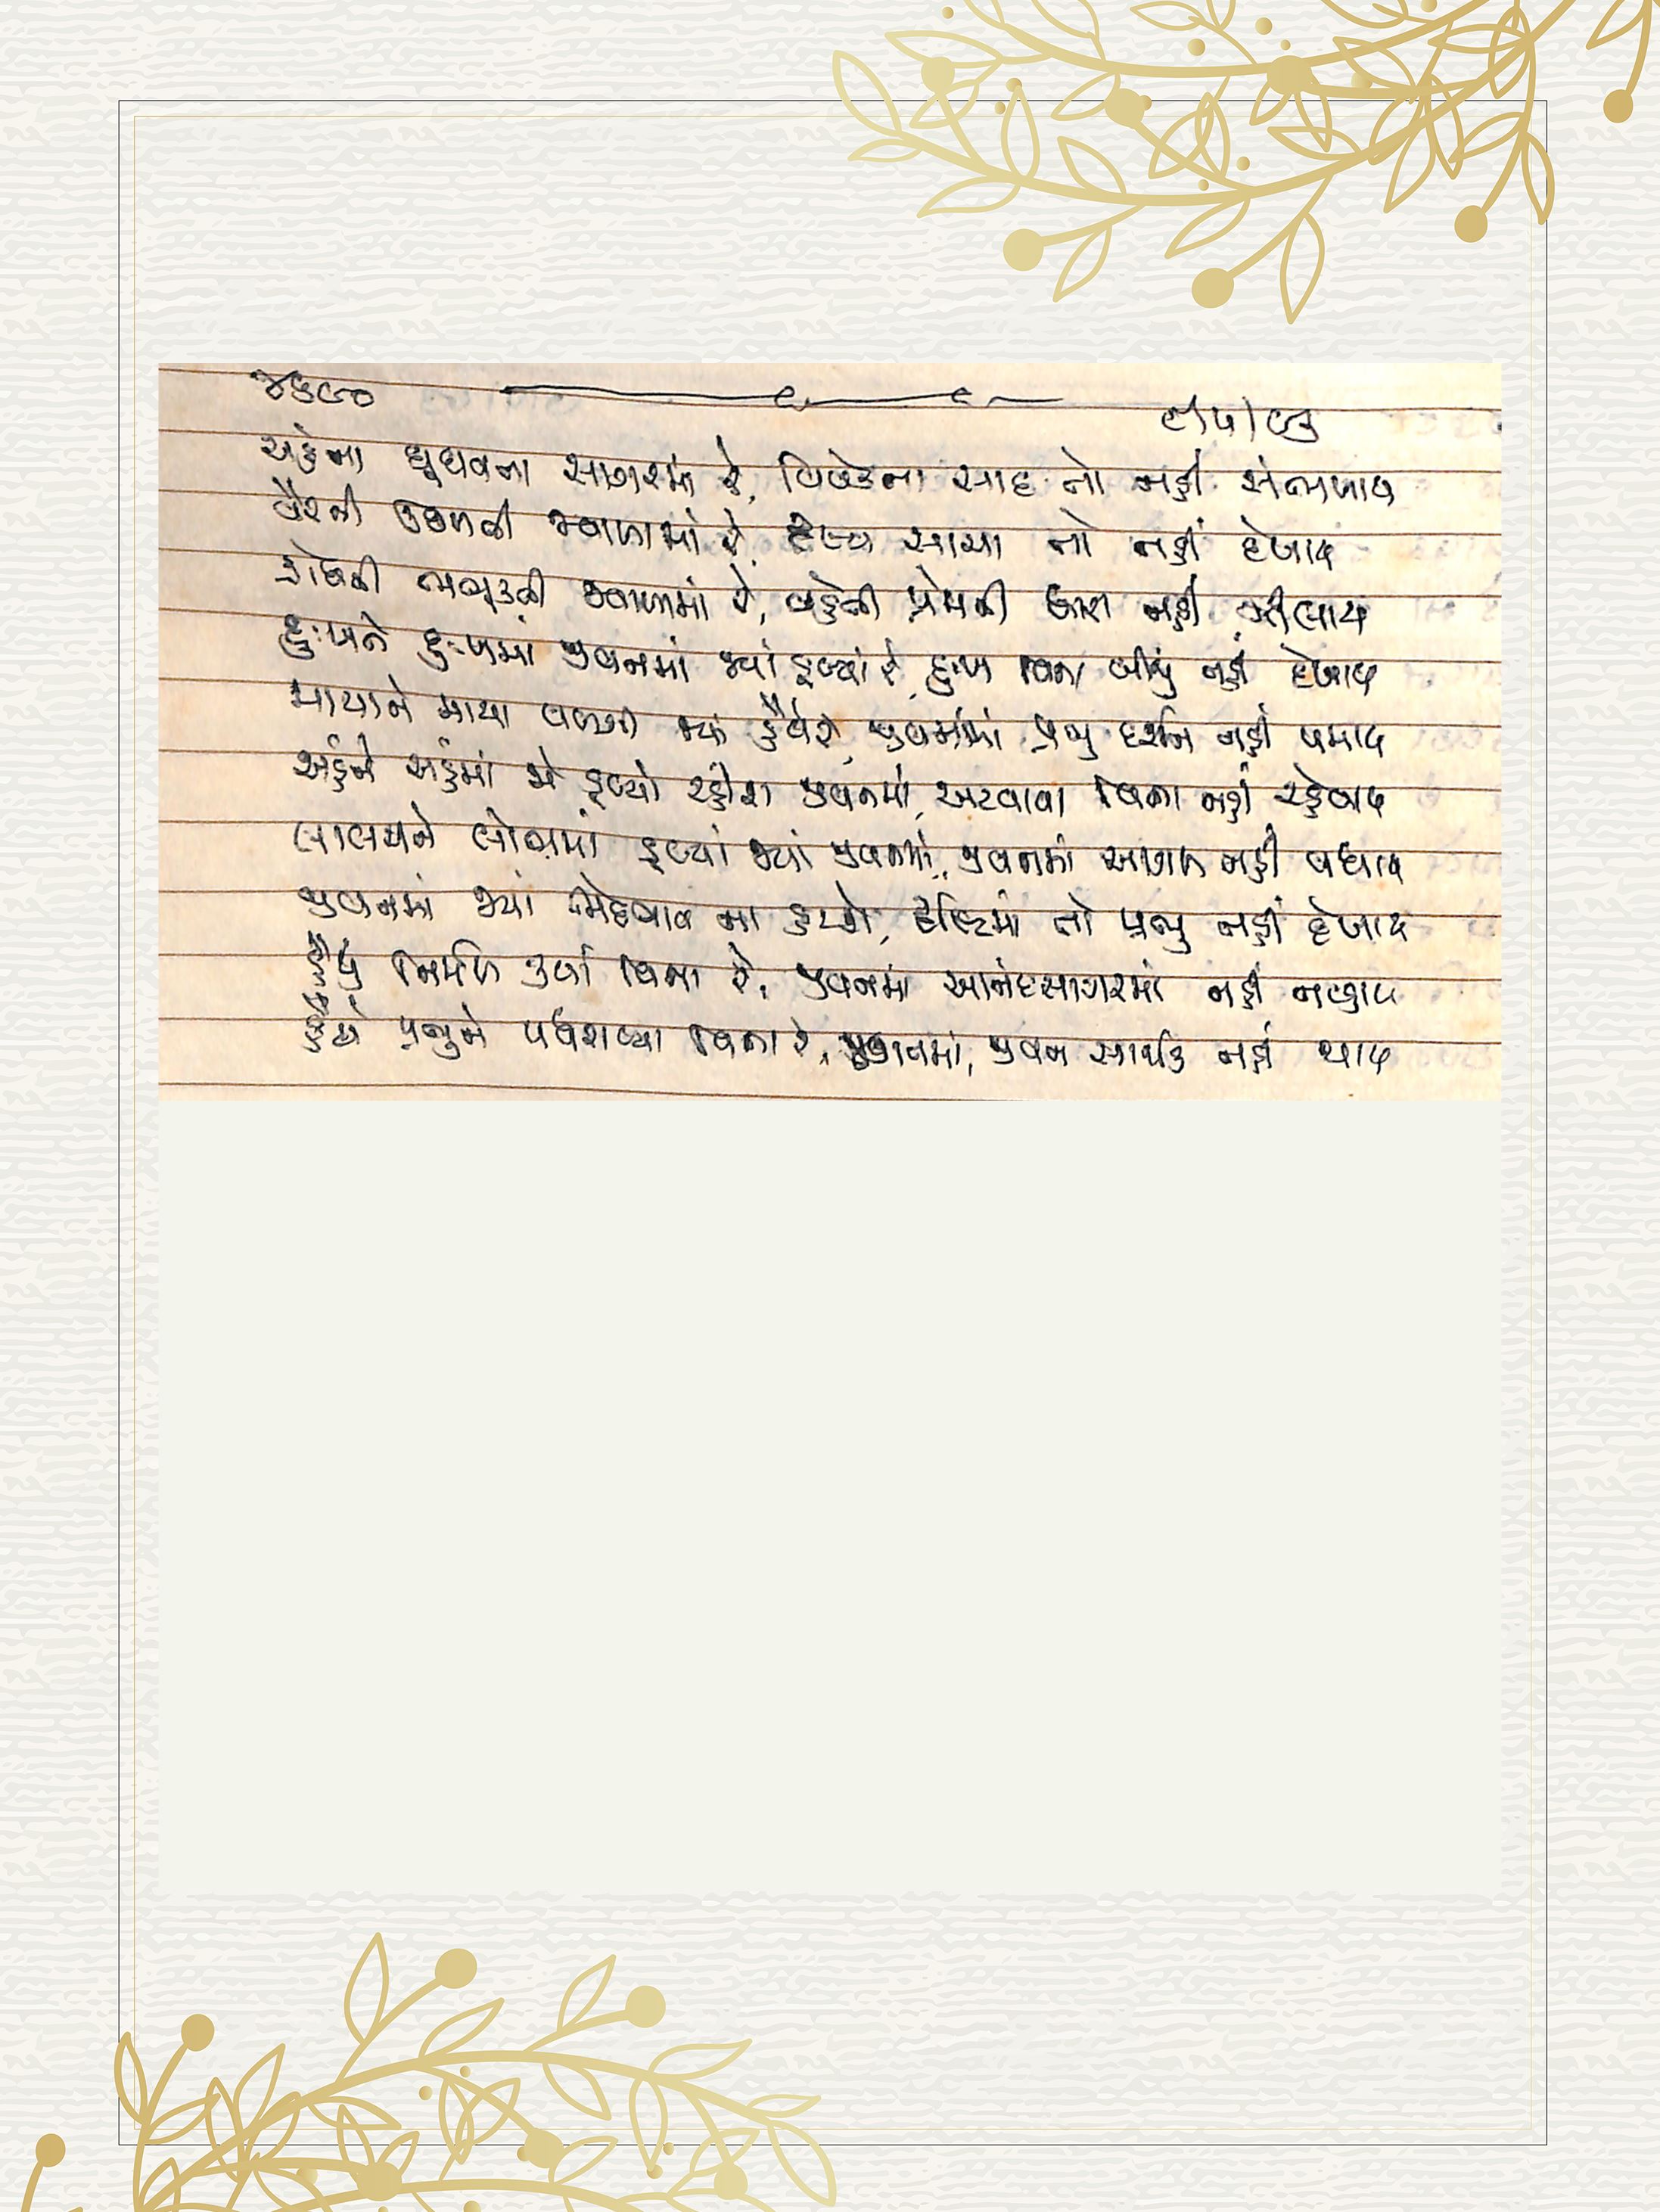 ૪૬૯૦
૯/૫/૯૩
અહંના ઘૂઘવના સાગરમાં રે, વિવેકના સાદ તો નહીં સંભળાય
વૈરની ઉછળતી જ્વાળામાં રે, સાચા તો નહીં દેખાય
ક્રોધની ભભૂકતી જ્વાળામાં રે, વહેતી પ્રેમની ધારા નહીં ઝીલાય
દુઃખને દુઃખમાં જીવનમાં જ્યાં ડૂબ્યાં રે, દુઃખ વિના બીજું નહીં દેખાય
માયાને માયા વળગી જ્યાં હૈયે રે જીવનમાં પ્રભુ દર્શન નહીં પમાય
અહંને અહંમાં જો ડૂબ્યો રહીશ જીવનમાં, અટવાવા વિના નહીં રહેવાય
લાલચને લોભમાં ડૂબ્યાં જ્યાં જીવનમાં, જીવનમાં આગળ નહીં વધાય
જીવનમાં જ્યાં ભેદભાવ ના હટયો, દૃષ્ટિમાં તો પ્રભુ નહીં દેખાય
હૈયું નિર્મળ કર્યા વિના રે, જીવનમાં આનંદસાગરમાં નહીં નહાય
હૈયે પ્રભુને પધરાવ્યા વિના રે, જીવનમાં, જીવન સાર્થક નહીં થાય